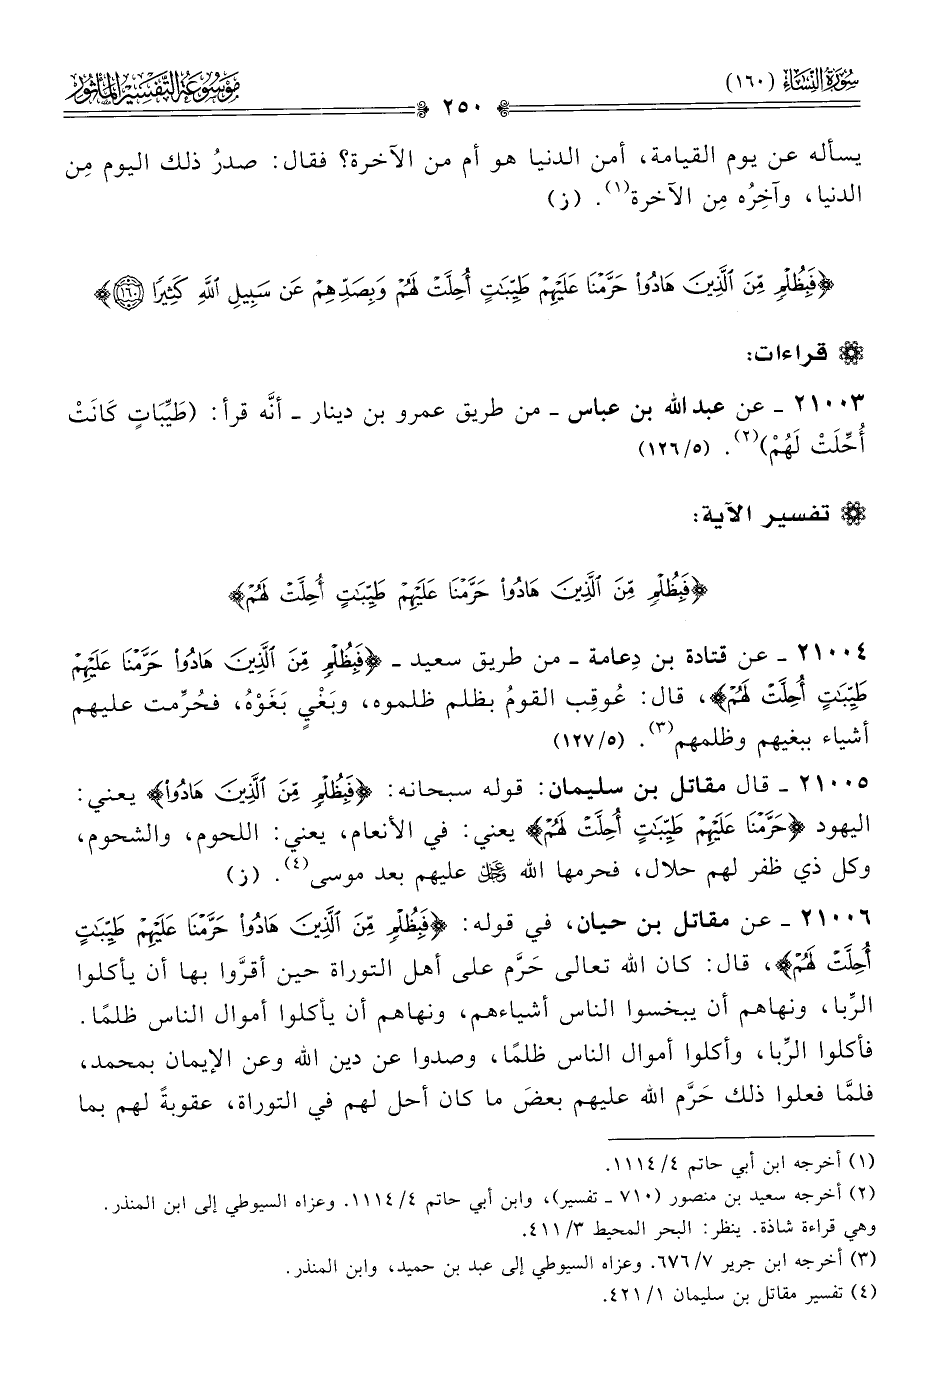 سُورَةُ النِّسَاءِ (١٦٠)
مَوْسُوعَةُ التَّفْسِيرِ المَأْثُورِ
٢٥٠
يسأله عن يوم القيامة، أمن الدنيا هو أم من الآخرة؟ فقال: صدرُ ذلك اليوم مِن
الدنيا، وآخِرُه مِن الآخرة(١). (ز)
﴿فَبِظُلْمٍ مِّنَ ٱلَّذِينَ هَادُوا۟ حَرَّمْنَا عَلَيْهِمْ طَيِّبَٰتٍ أُحِلَّتْ لَهُمْ وَبِصَدِّهِمْ عَن سَبِيلِ ٱللَّهِ كَثِيرًا ١٦٠﴾
قراءات:
٢١٠٠٣ ـ عن عبد الله بن عباس ـ من طريق عمرو بن دينار ـ أنَّه قرأ: (طَيِّبَاتٍ كَانَتْ
أُحِّلَتْ لَهُمْ)(٢). (١٢٦/٥)
تفسير الآية:
﴿فَبِظُلْمٍ مِّنَ ٱلَّذِينَ هَادُوا۟ حَرَّمْنَا عَلَيْهِمْ طَيِّبَٰتٍ أُحِلَّتْ لَهُمْ﴾
٢١٠٠٤ ـ عن قتادة بن دِعامة ـ من طريق سعيد ـ ﴿فَبِظُلْمٍ مِّنَ ٱلَّذِينَ هَادُوا۟ حَرَّمْنَا عَلَيْهِمْ
طَيِّبَٰتٍ أُحِلَّتْ لَهُمْ﴾، قال: عُوقِب القومُ بظلم ظلموه، وبَغْيٍ بَغَوْهُ، فحُرِّمت عليهم
أشياء ببغيهم وظلمهم(٣). (١٢٧/٥)
٢١٠٠٥ ـ قال مقاتل بن سليمان: قوله سبحانه: ﴿فَبِظُلْمٍ مِّنَ ٱلَّذِينَ هَادُوا۟﴾ يعني:
اليهود ﴿حَرَّمْنَا عَلَيْهِمْ طَيِّبَٰتٍ أُحِلَّتْ لَهُمْ﴾ يعني: في الأنعام، يعني: اللحوم، والشحوم،
وكل ذي ظفر لهم حلال، فحرمها الله ﷿ عليهم بعد موسى(٤). (ز)
٢١٠٠٦ ـ عن مقاتل بن حيان، في قوله: ﴿فَبِظُلْمٍ مِّنَ ٱلَّذِينَ هَادُوا۟ حَرَّمْنَا عَلَيْهِمْ طَيِّبَٰتٍ
أُحِلَّتْ لَهُمْ﴾، قال: كان الله تعالى حَرَّم على أهل التوراة حين أقرَّوا بها أن يأكلوا
الرِّبا، ونهاهم أن يبخسوا الناس أشياءهم، ونهاهم أن يأكلوا أموال الناس ظلمًا.
فأكلوا الرِّبا، وأكلوا أموال الناس ظلمًا، وصدوا عن دين الله وعن الإيمان بمحمد،
فلمَّا فعلوا ذلك حَرَّم الله عليهم بعضَ ما كان أحل لهم في التوراة، عقوبةً لهم بما
(١) أخرجه ابن أبي حاتم ١١١٤/٤.
(٢) أخرجه سعيد بن منصور (٧١٠ ـ تفسير)، وابن أبي حاتم ١١١٤/٤. وعزاه السيوطي إلى ابن المنذر.
وهي قراءة شاذة. ينظر: البحر المحيط ٤١١/٣.
(٣) أخرجه ابن جرير ٦٧٦/٧. وعزاه السيوطي إلى عبد بن حميد، وابن المنذر.
(٤) تفسير مقاتل بن سليمان ٤٢١/١.